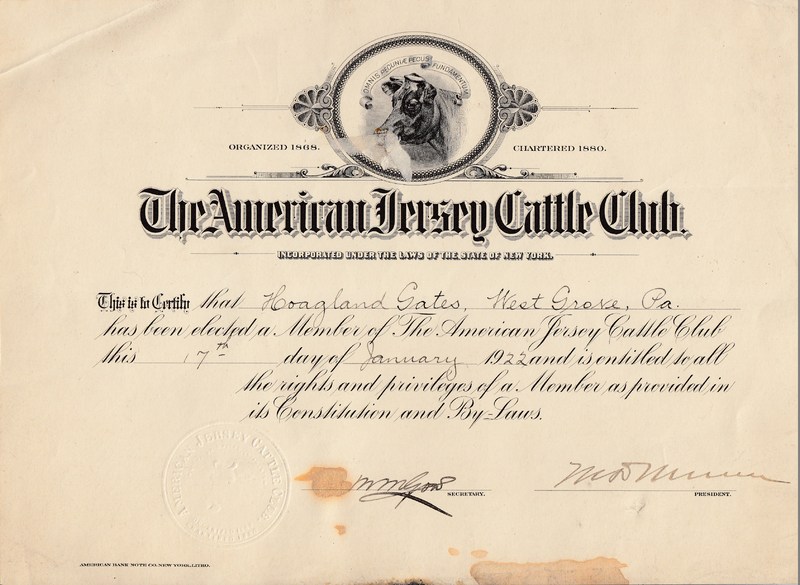 OMNIS PECUNIÆ PECUS FUNDAMENTUM
ORGANIZED 1868. CHARTERED 1880.
The American Jersey Cattle Club.
INCORPORATED UNDER THE LAWS OF THE STATE OF NEW YORK.
This is to Certify that Hoagland Gates, West Grove, Pa.
has been elected a Member of The American Jersey Cattle Club
this 17th day of January 1922 and is entitled to all
the rights and privileges of a Member as provided in
its Constitution and By-Laws.
AMERICAN JERSEY CATTLE CLUB
SECRETARY. PRESIDENT.
AMERICAN BANK NOTE CO. NEW YORK, LITHO.